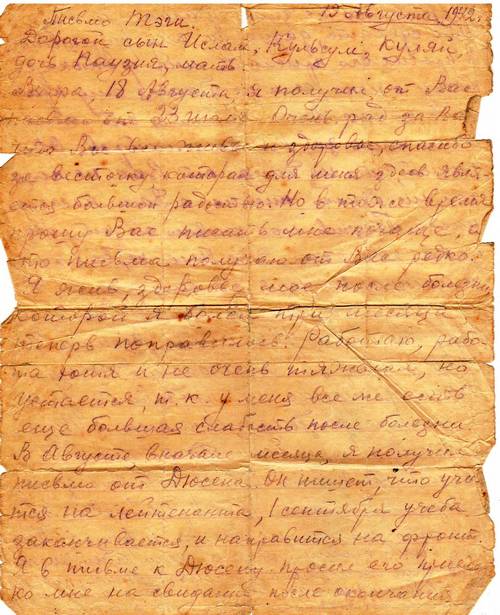 Письмо Тэги. 19 Августа 1942.
Дорогой сын Ислам, Кульсум, Куляй
дочь Наузия, мать
Вчера 18 Августа я получил от Вас
письмо от 23 июля. Очень рад за Ва
что Вы все живы и здоровы, спасибо
за весточку которая для меня здесь явля
ется большой радостью. Но в тоже время
прошу Вас писать мне почаще, а
то письма получаю от Вас редко.
Я жив, здоровье мое после болезни
которой я болел три месяца
теперь поправилось. Работаю, рабо
та хотя и не очень тяжелая, но
устается, т.к. у меня все же есть
еще большая слабость после болезни.
В Августе вначале месяца, я получил
письмо от Дюсена. Он пишет, что учи
тся на лейтенанта, 1 сентября учеба
заканчивается и направится на фронт.
Я в письме к Дюсену просил его приех
ко мне на свидание после окончания